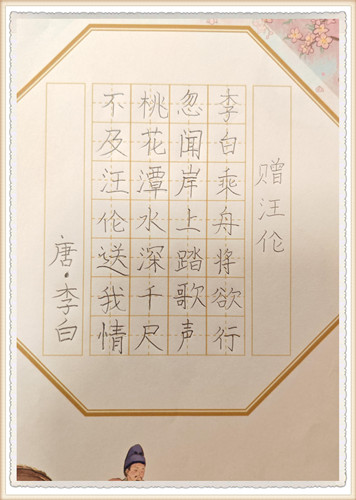 赠汪伦
李白乘舟将欲行
忽闻岸上踏歌声
桃花潭水深千尺
不及汪伦送我情
唐·李白